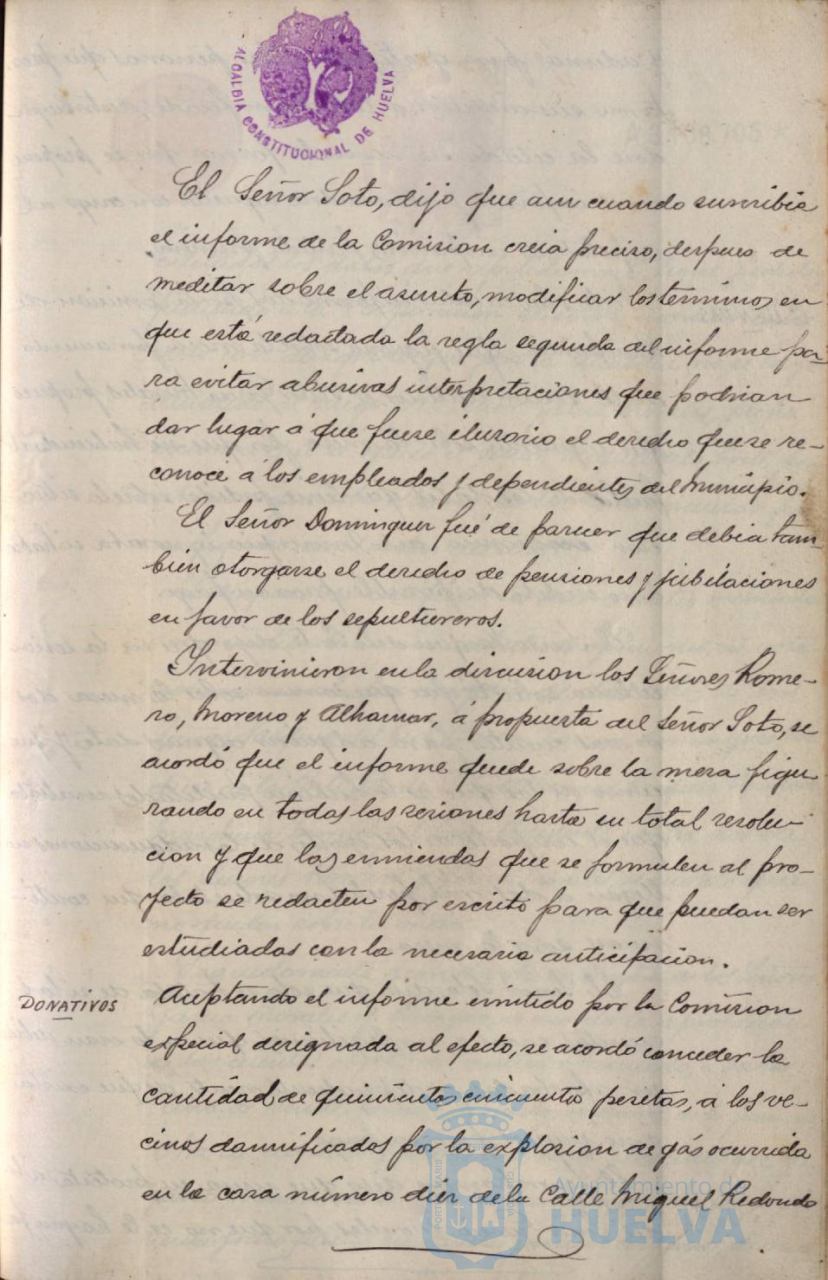 ALCALDIA CONSTITUCIONAL DE HUELVA
El Señor Soto, dijo que aun cuando suscribia
el informe de la Comision creia preciso, despues de
meditar sobre el asunto, modificar los terminos en
que está redactada la regla segunda del informe pa-
ra evitar abusivas interpretaciones que podrian
dar lugar á que fuese ilusorio el derecho que se re-
conoce á los empleados y dependientes del Municipio.
El Señor Dominguez fué de parecer que debia tam-
bién otorgarse el derecho de pensiones y jubilaciones
en favor de los sepultureros.
Intervinieron en la discusion los Señores Rome-
ro, Moreno y Alhamar, á propuesta del Señor Soto, se
acordó que el informe quede sobre la mesa figu
rando en todas las sesiones hasta su total resolu-
cion y que las enmiendas que se formulen al pro-
yecto se redacten por escrito para que puedan ser
estudiadas con la necesaria anticipacion.
DONATIVOS
Aceptando el informe emitido por la Comision
especial designada al efecto, se acordó conceder la
cantidad de quinientas cincuenta pesetas, á los ve-
cinos damnificados por la explosion de gás ocurrida
en la casa número diez de la Calle Miguel Redondo
Ayuntamiento de
HUELVA